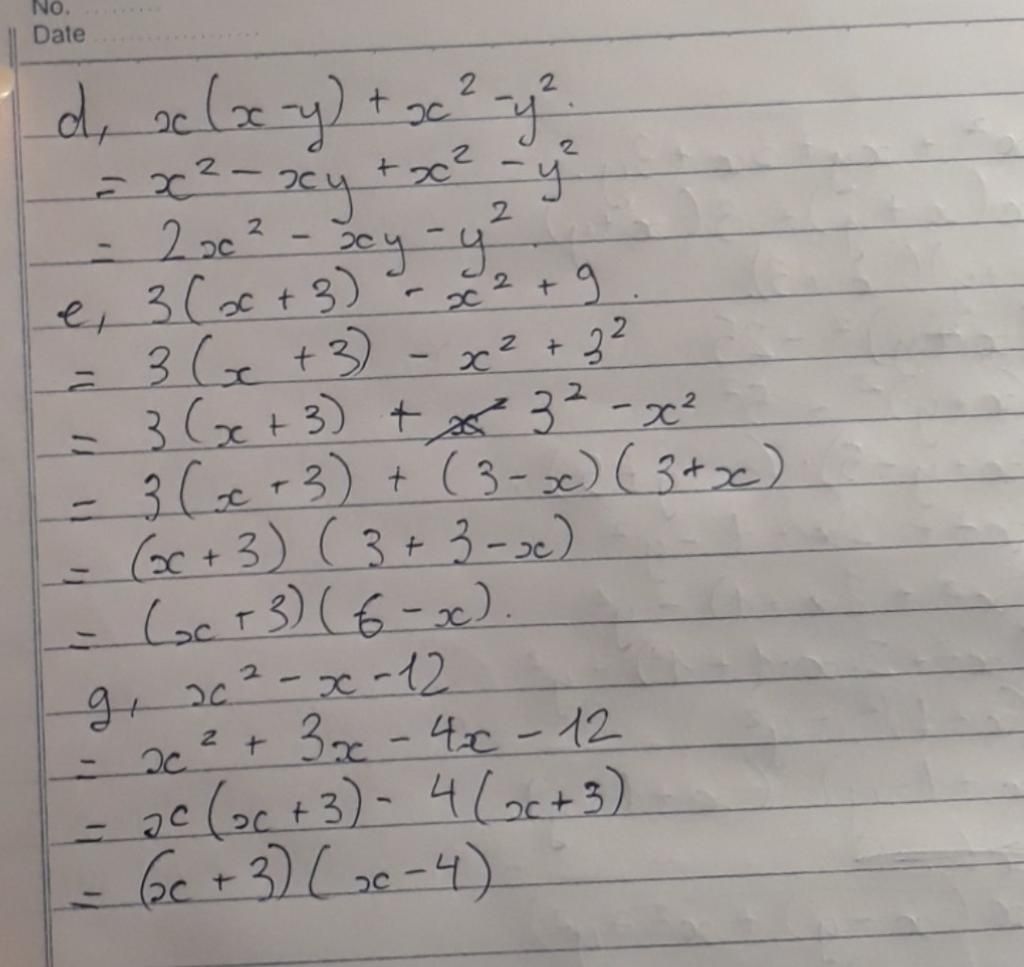 No. ..........
Date ....................
d, x(x-y) + x² - y².
= x² - xy + x² - y²
= 2x² - xy - y².
e, 3(x + 3) - x² + 9.
= 3(x + 3) - x² + 3²
= 3(x + 3) + 3² - x²
= 3(x + 3) + (3 - x)(3 + x)
= (x + 3)(3 + 3 - x)
= (x + 3)(6 - x).
g, x² - x - 12
= x² + 3x - 4x - 12
= x(x + 3) - 4(x + 3)
= (x + 3)(x - 4)